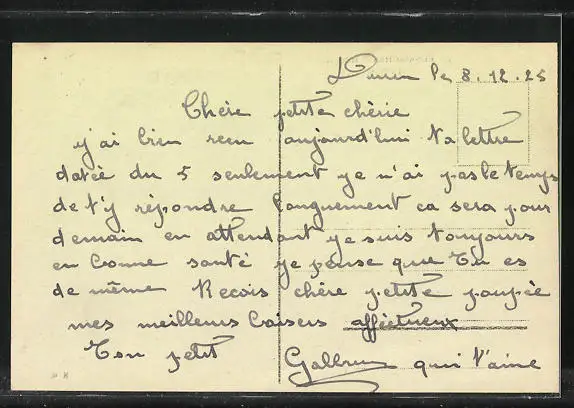 le 8.12.25
Chère petite chérie
j'ai bien reçu aujourd'hui ta lettre
datée du 5 seulement je n'ai pas le temps
de t'y répondre longuement ca sera pour
demain en attendant je suis toujours
en bonne santé je pense que Tu es
de même Recois chère petite poupée
mes meilleurs baisers affectueux
Ton petit qui t'aime